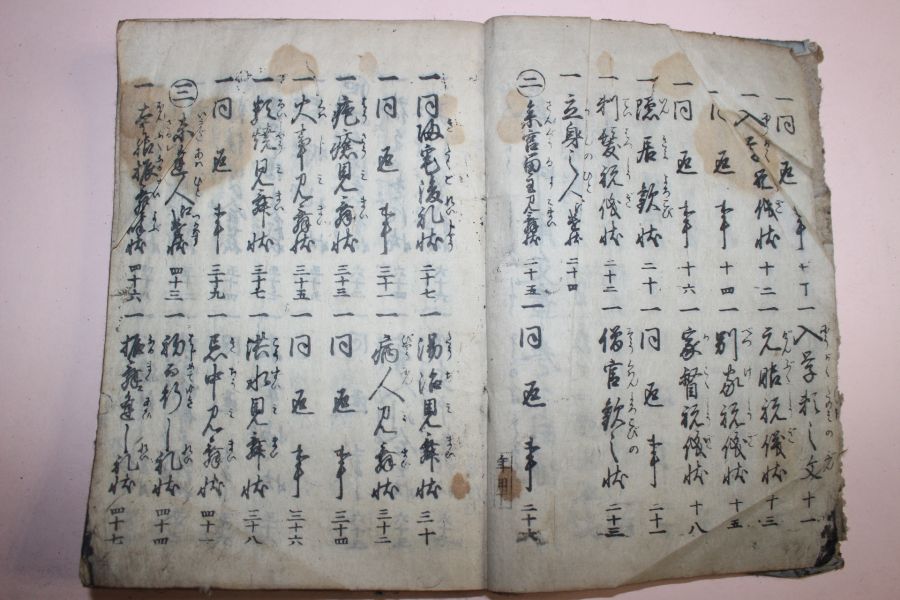 一同返事
一入学頼之文 十一
一入学祝儀状 十二
一元服祝儀状 十三
返事 十四
一別家祝儀状 十五
一同返事 十六
一家督祝儀状 十八
一隠居歓状 二十
一同返事 二十一
一剃髪祝儀状 二十二
一僧官歓之状 二十三
一立身之人 二十四
二 参宮留主見舞状 二十五
一同返事
一同 宅後礼状 二十七
一湯治見舞状 三十
一同返事 三十一
一病人見舞状 三十二
一疱瘡見舞状 三十三
一同返事 三十四
一火事見舞状 三十五
一同返事 三十六
一類焼見舞状 三十七
一洪水見舞状 三十八
一同返事 三十九
一忌中見舞状 四十一
三 人 四十三
四十四
一 振舞状 四十六
一振舞 礼状 四十七